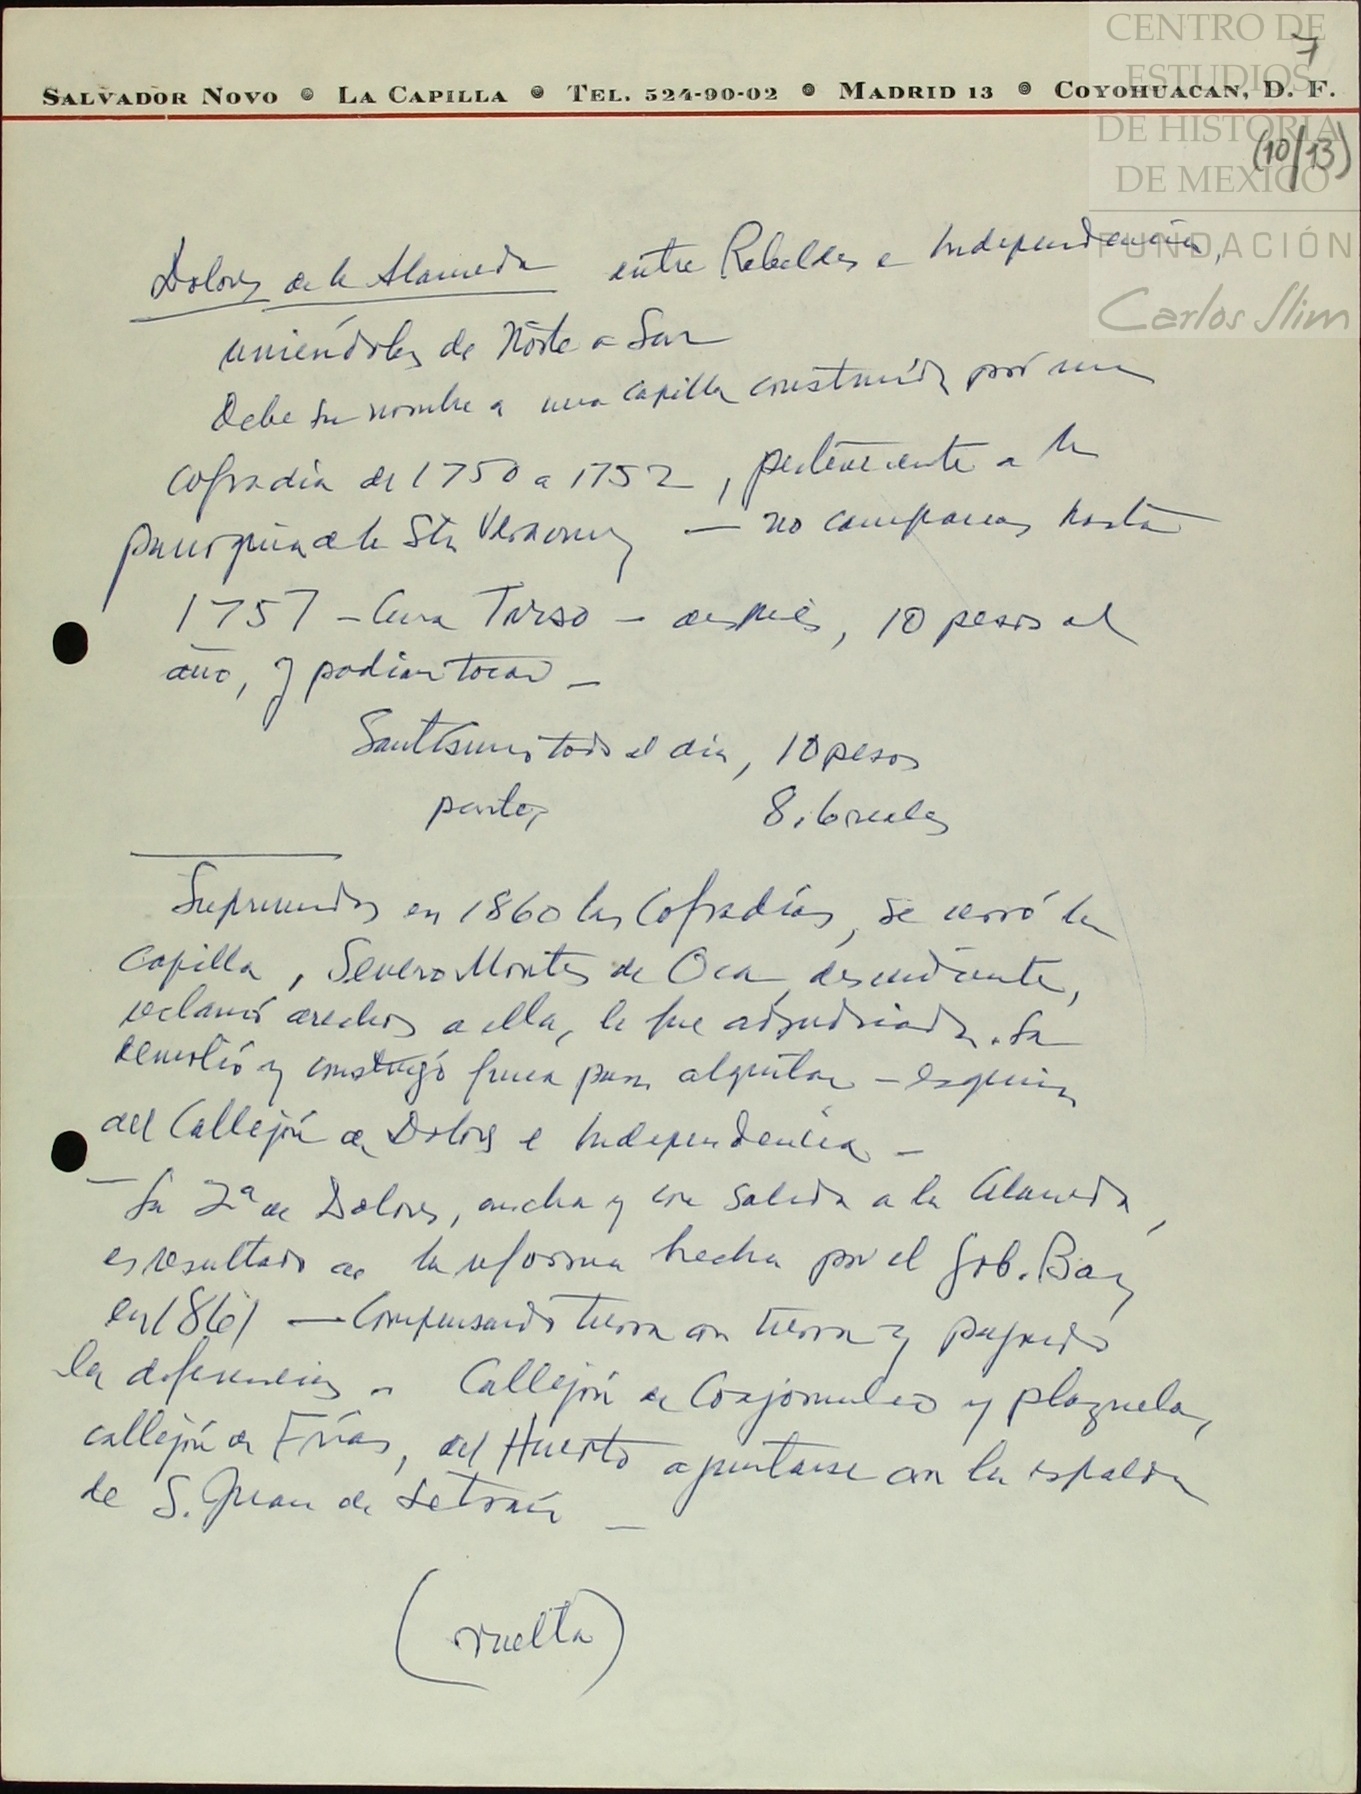 CENTRO DE
ESTUDIOS
DE HISTORIA
DE MEXICO
FUNDACIÓN
Carlos Slim
7
SALVADOR NOVO LA CAPILLA TEL. 524-90-02 MADRID 13 COYOHUACAN, D. F.
(10/13)
Dolores de la Alameda entre Rebeldes e Independencia,
uniéndolas de Norte a Sur
Debe su nombre a una capilla construída por una
cofradía de 1750 a 1752, perteneciente a la
parroquia de la Sta Veracruz — no campanas hasta
1757 — Cura Tirso — después, 10 pesos al
año, y podían tocar —
Santísimo todo el día, 10 pesos
parte, 8. 6 reales
Suprimidas en 1860 las Cofradías, se cerró la
capilla, Severo Montes de Oca, descendiente,
reclamó derechos a ella, le fue adjudicada. La
demolió y construyó finca para alquilar — esquina
del Callejón de Dolores e Independencia —
— La 2ª de Dolores, ancha y con salida a la Alameda,
es resultado de la reforma hecha por el Gob. Baz
en 1861 — Compensando tierra con tierra y pagando
la diferencia. Callejón de Coajomulco y plazuela,
callejón de Frías, del Huerto a juntarse con la espalda
de S. Juan de Letrán —
(vuelta)